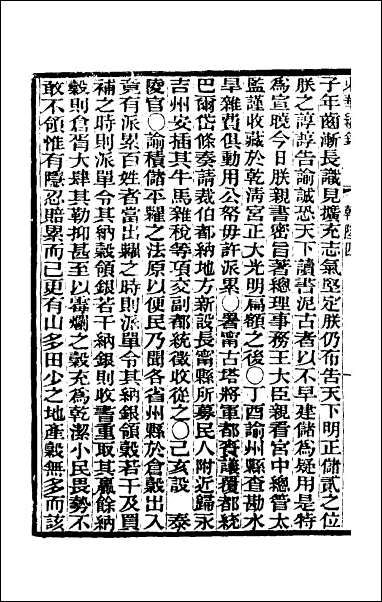 東華續錄　　乾隆四
子年齒漸長識見擴充志氣堅定朕仍布告天下明正儲貳之位
朕之諄諄告諭誠恐天下讀書泥古者以不早建儲為疑用是特
為宣曉今日朕親書密旨著總理事務王大臣親看宮中總管太
監謹收藏於乾清宮正大光明扁額之後〇丁酉諭州縣查勘水
旱雜費俱動用公帑毋許派累〇署甯古塔將軍都賚議覆都統
巴爾岱條奏請裁伯都納地方新設長甯縣所募民人附近歸永
吉州安插其牛馬雜稅等項交副都統徵收從之〇己亥設　泰
陵官〇諭積儲平糶之法原以便民乃聞各省州縣於倉穀出入
竟有派累百姓者當出糶之時則派單令其納銀領穀若干及買
補之時則派單令其納穀領銀若干納銀則收書重取其贏餘納
穀則倉胥大肆其勒抑甚至以霉爛之穀充為乾潔小民畏勢不
敢不領惟有隱忍賠累而已更有山多田少之地產穀無多而該